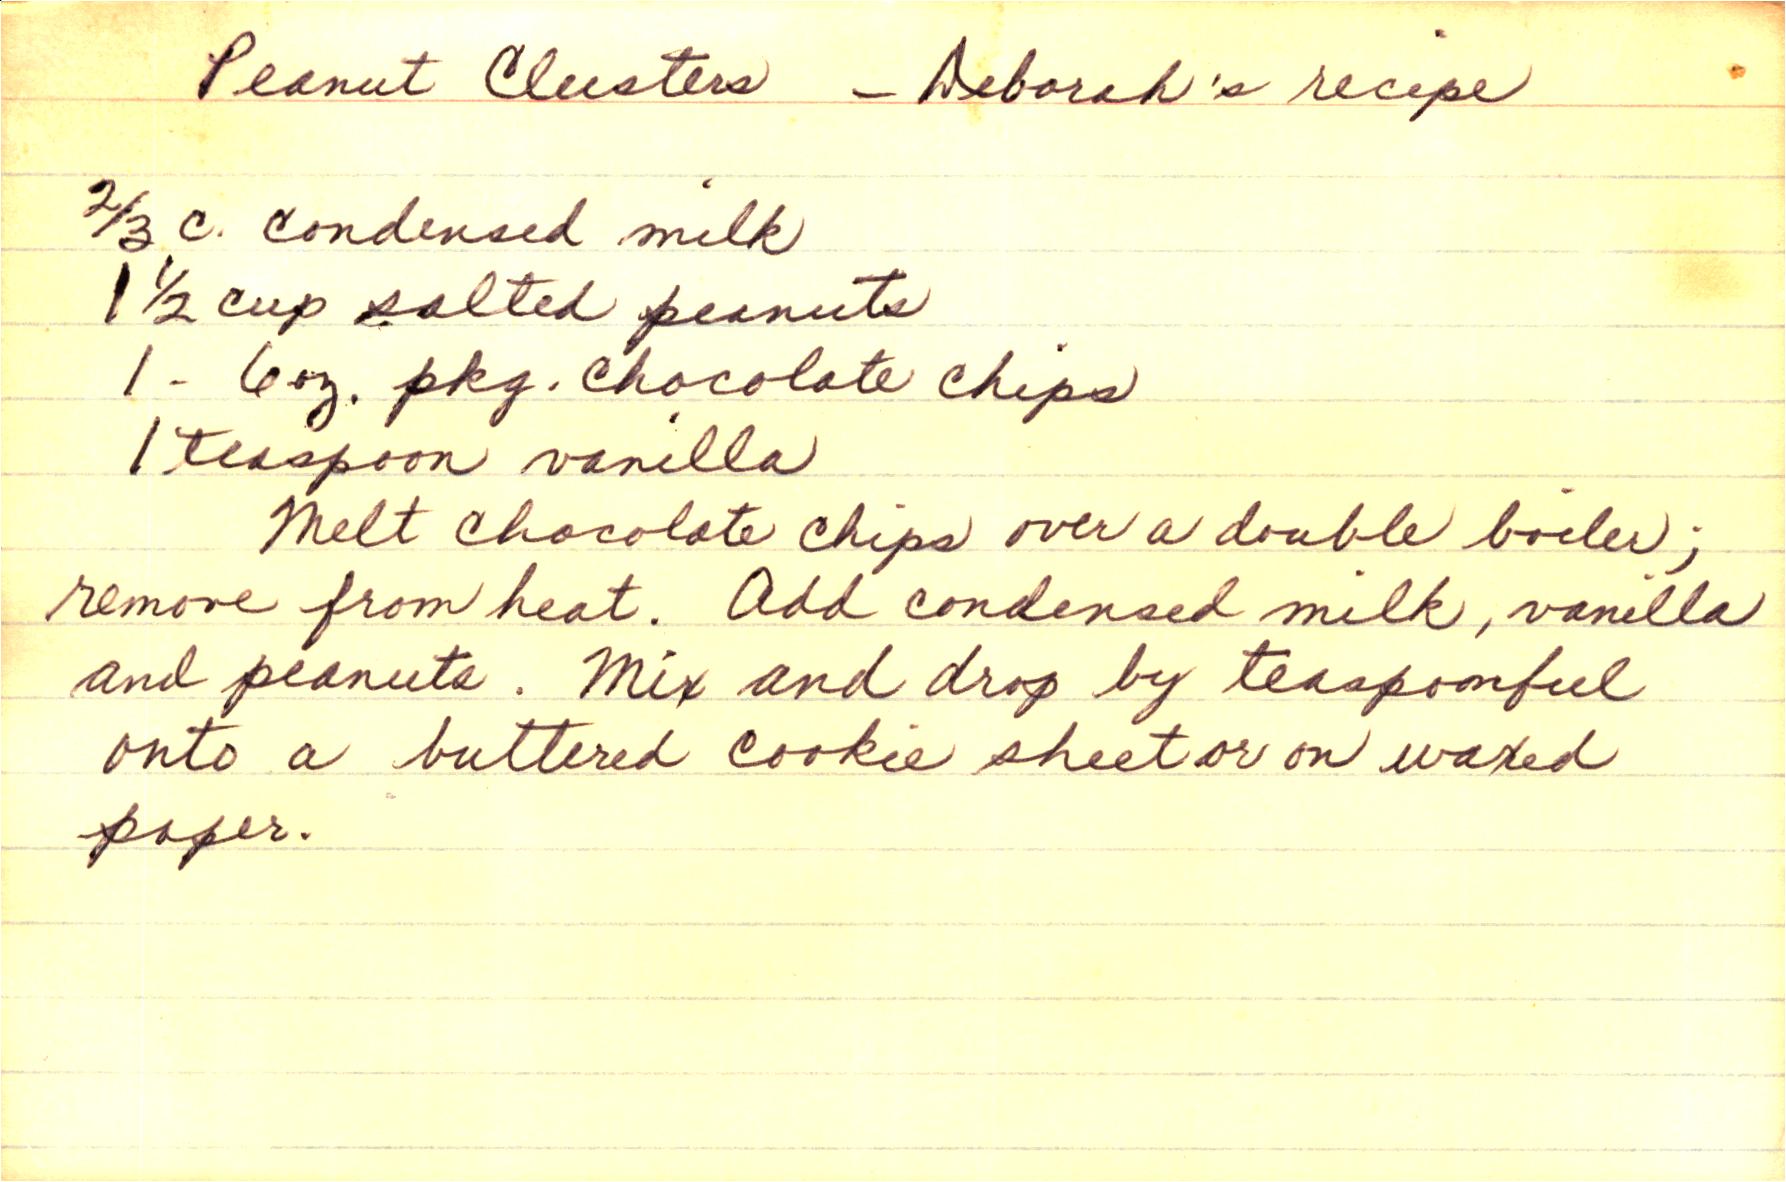 Peanut Clusters – Deborah's recipe
2/3 c. condensed milk
1 1/2 cup salted peanuts
1 - 6 oz. pkg. chocolate chips
1 teaspoon vanilla
Melt chocolate chips over a double boiler;
remove from heat. Add condensed milk, vanilla
and peanuts. Mix and drop by teaspoonful
onto a buttered cookie sheet or on waxed
paper.